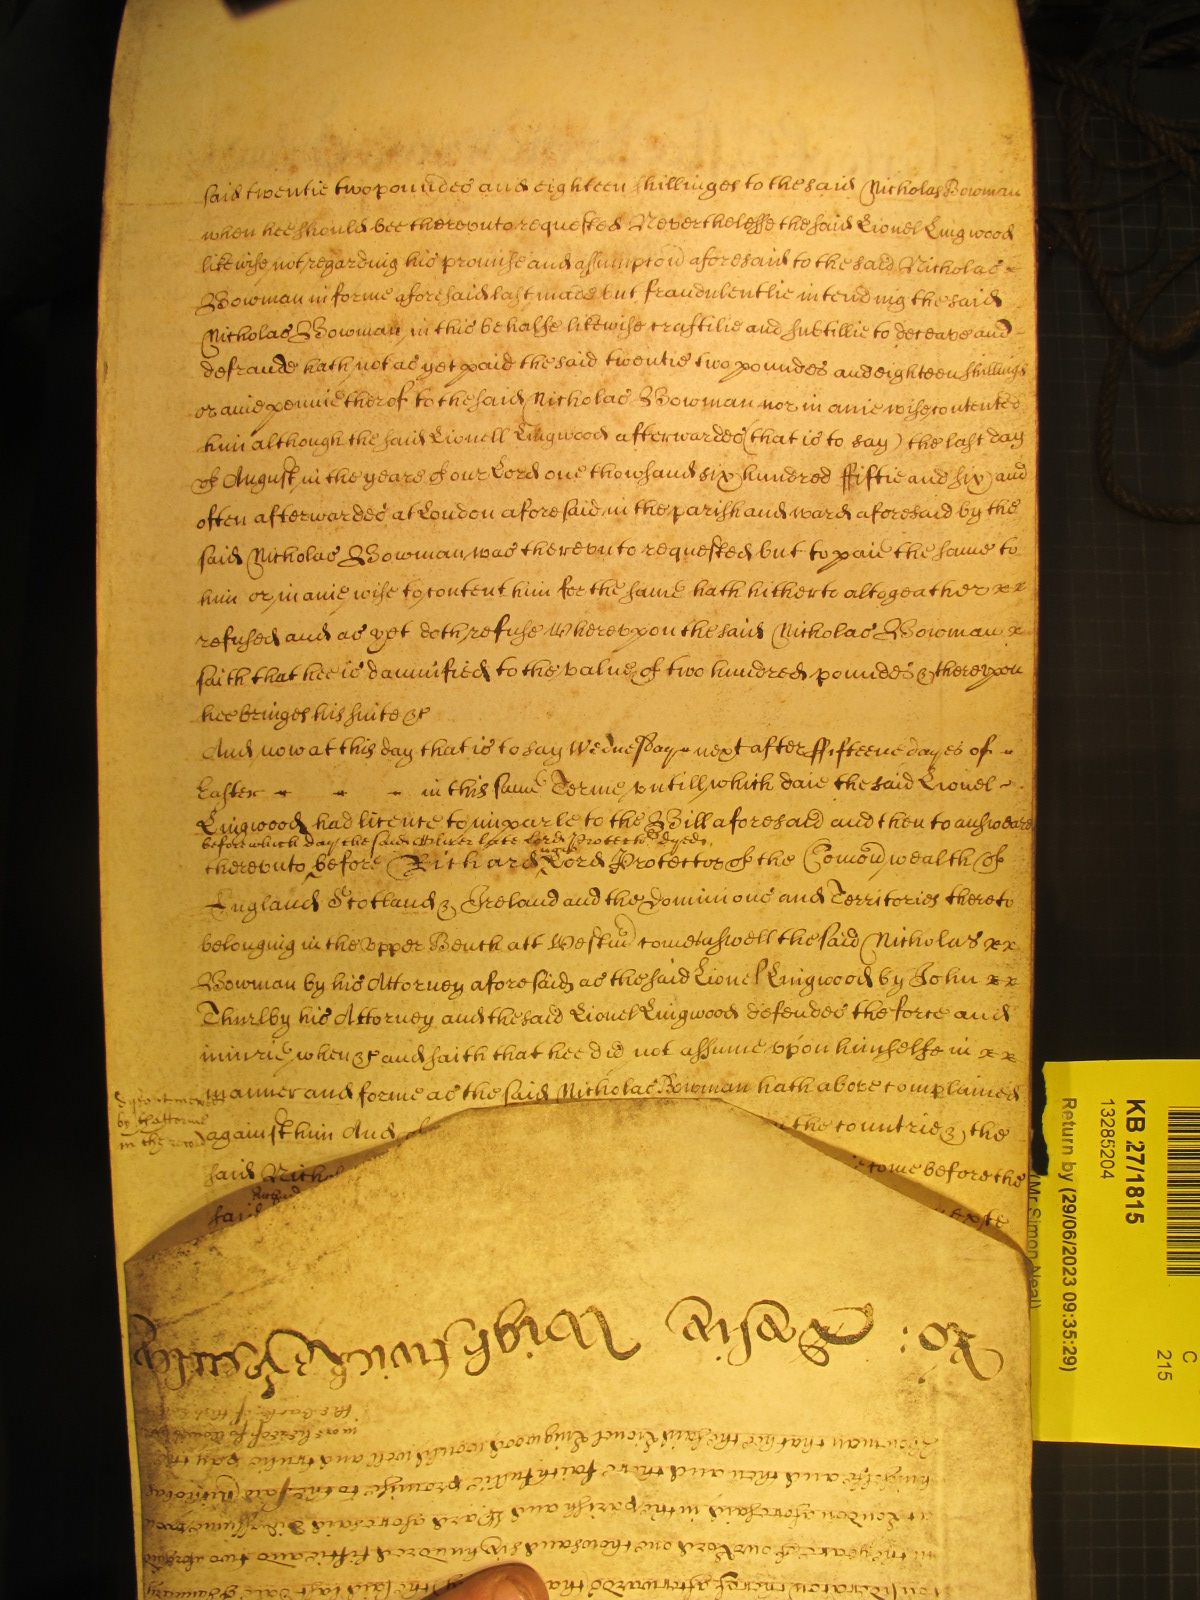 said twentie two poundes and eighteen shillinges to the said Nicholas Bowman
when hee should bee therevnto requested Neverthelesse the said Lionel Lingwood
likewise not regarding his promise and assumption aforesaid to the said Nicholas
Bowman in forme aforesaid last made but fraudulentlie intending the said
Nicholas Bowman in this behalfe likewise craftilie and subtillie to deceave and
defraude hath not as yet paid the said twentie two poundes and eighteen shillings
or anie pennie therof to the said Nicholas Bowman nor in anie wise contented
him although the said Lionell Lingwood afterwardes (that is to say) the last day
of August in the yeare of our Lord one thowsand six hundred fiftie and six and
often afterwardes at London aforesaid in the parish and ward aforesaid by the
said Nicholas Bowman was therevnto requested but to paie the same to
him or in anie wise to content him for the same hath hitherto altogeather
refused and as yet doth refuse Wherevpon the said Nicholas Bowman
saith that hee is damnified to the value of two hundred poundes & therevpon
hee bringes his suite &c
And now at this day that is to say Wednesday next after fifteene dayes of
Easter in this same Terme vntill which daie the said Lionel
Lingwood had licence to imparle to the Bill aforesaid and then to answeare
before which day the said Oliver late Lord Protector dyed
therevnto before Richard now Lord Protector of the Comon wealth of
England Scotland & Ireland and the Dominions and Territories thereto
belonging in the vpper Bench att Westm come aswell the said Nicholas
Bowman by his Attorney aforesaid as the said Lionel Lingwood by John
Thurlby his Attorney and the said Lionel Lingwood defendes the force and
iniurie when &c and saith that hee did not assume vpon himselfe in
manner and forme as the said Nicholas Bowman hath above complained
by
in the
against him And the countrie & the
said Nich come before the
said
KB 27/1815
13285204
Return by (29/06/2023 09:35:29)
(Mr Simon Neal)
C
215
Ro:
Bowman that hee the said Lionel Lingwood would well and trulie pay the
himselfe and then and there faithfullie promise to the said Nicholas
at London aforesaid in the parish and Ward aforesaid did assume vpon
in the yeare of our Lord one thowsand six hundred fiftie and two aforesaid
consideration therof afterwardes the said last daie of January